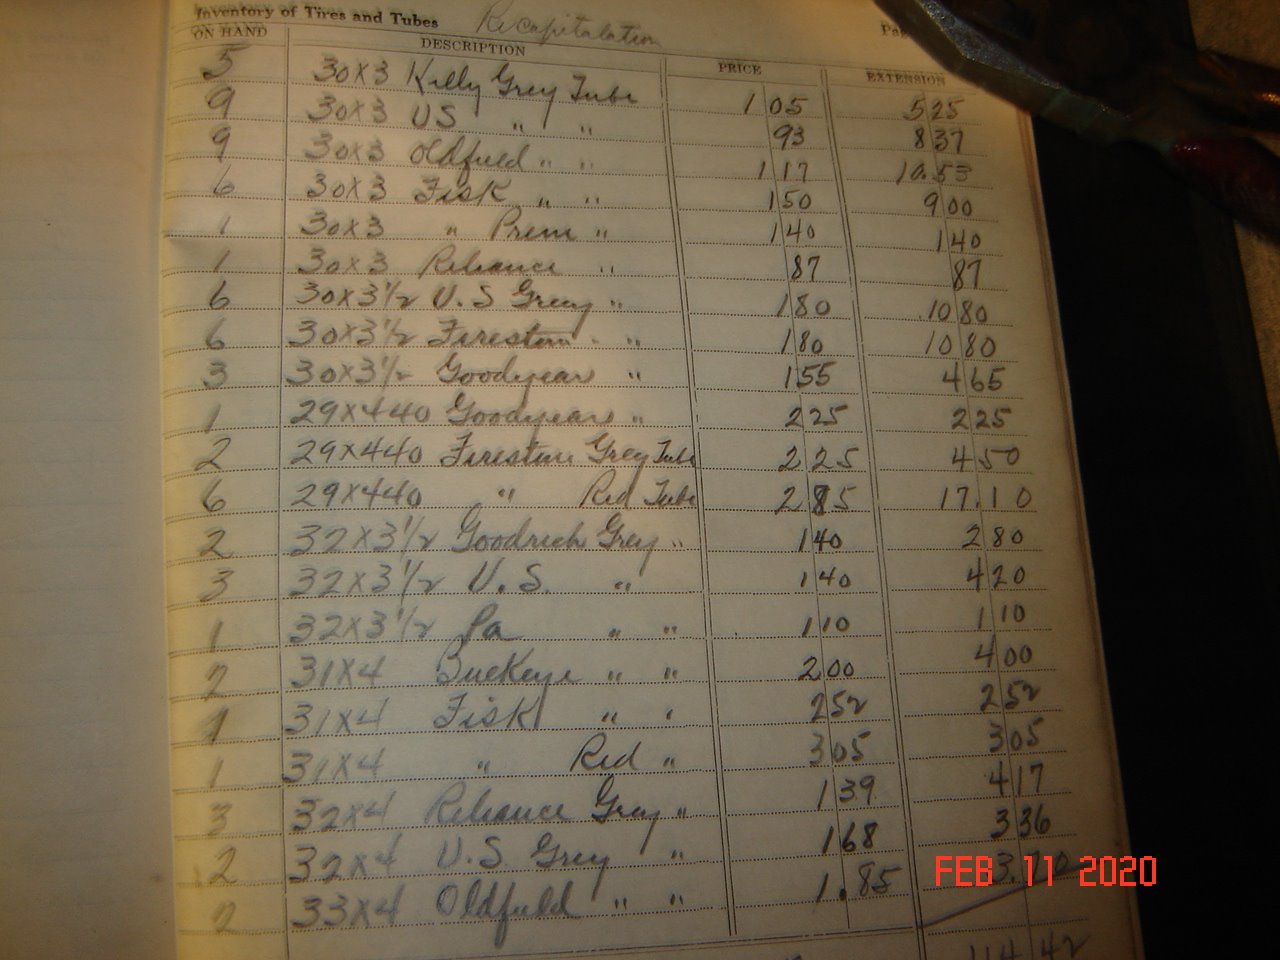 Inventory of Tires and Tubes Recapitulation
ON HAND DESCRIPTION PRICE EXTENSION
5 30X3 Kelly Grey Tube 1 05 5 25
9 30X3 US " " 93 8 37
9 30X3 Oldfield " " 1 17 10.53
6 30X3 Fisk " " 1 50 9 00
1 30X3 " Prem " 1 40 1 40
1 30X3 Reliance " 87 87
6 30X3 1/2 U.S Grey " 1 80 10 80
6 30X3 1/2 Firestone " " 1 80 10 80
3 30X3 1/2 Goodyear " 1 55 4 65
1 29X440 Goodyear " 2 25 2 25
2 29X440 Firestone Grey Tube 2 25 4 50
6 29X440 " Red Tube 2 85 17.10
2 32X3 1/2 Goodrich Grey " 1 40 2 80
3 32X3 1/2 U.S. " 1 40 4 20
1 32X3 1/2 Pa " " 1 10 1 10
2 31X4 Buckeye " " 2 00 4 00
1 31X4 Fisk " " 2 52 2 52
1 31X4 " Red " 3 05 3 05
3 32X4 Reliance Grey " 1 39 4 17
2 32X4 U.S. Grey " 1 68 3 36
2 33X4 Oldfield " " 1.85 3.70
114 42
FEB 11 2020